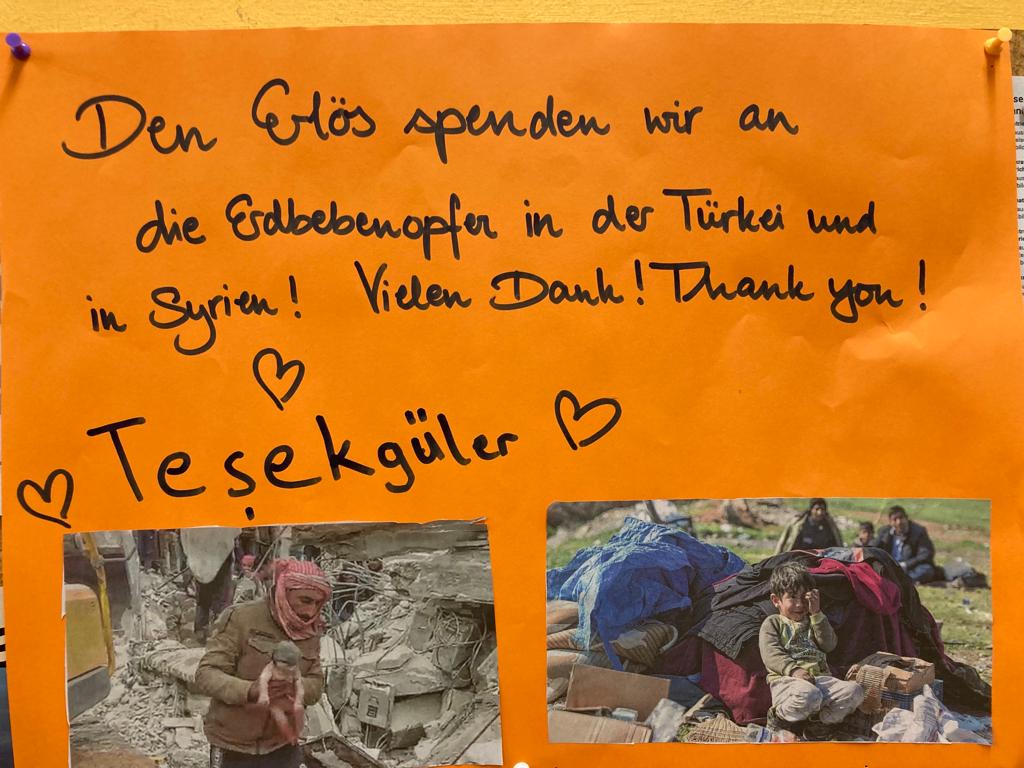 Den Erlös spenden wir an
die Erdbebenopfer in der Türkei und
in Syrien! Vielen Dank! Thank you!
Teşekgüler